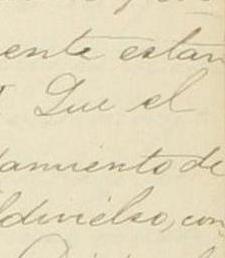 ente estan
Que el
damiento de
ldivielso, con